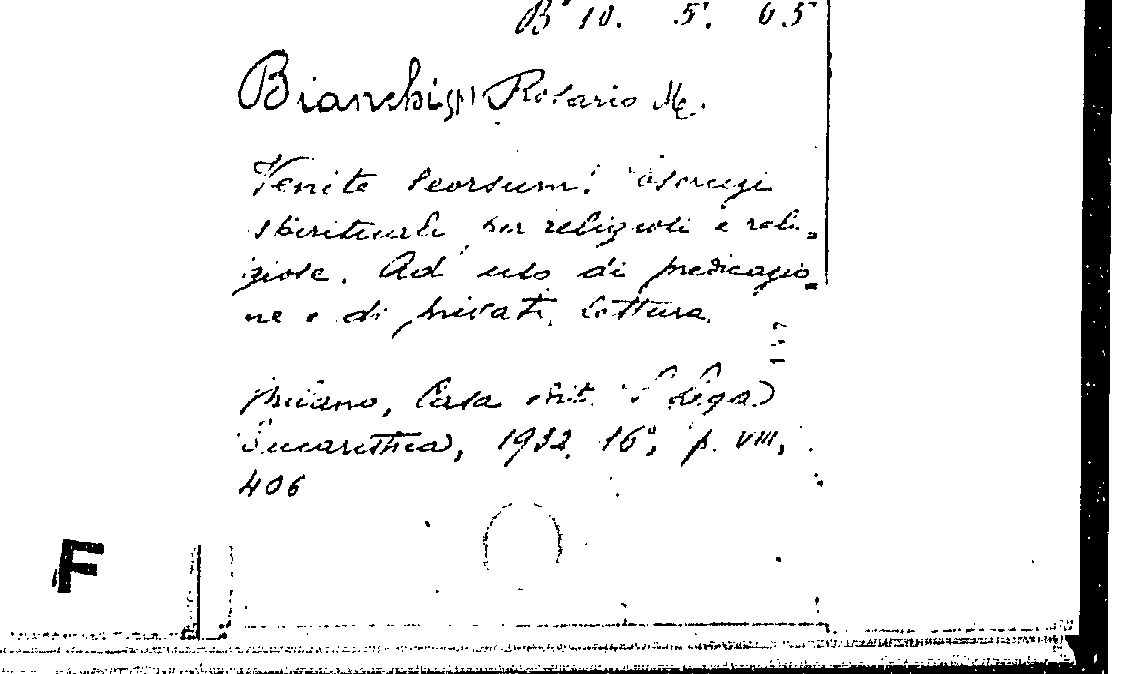 B 10. 5. 65
Bianchi, Rosario M.
Venite seorsum! Esercizi
spirituali per religiosi e reli-
giose. Ad uso di predicazio-
ne e di privata lettura.
Milano, Casa edit. S. Lega
Eucaristica, 1932. 16°, p. VIII,
406
F